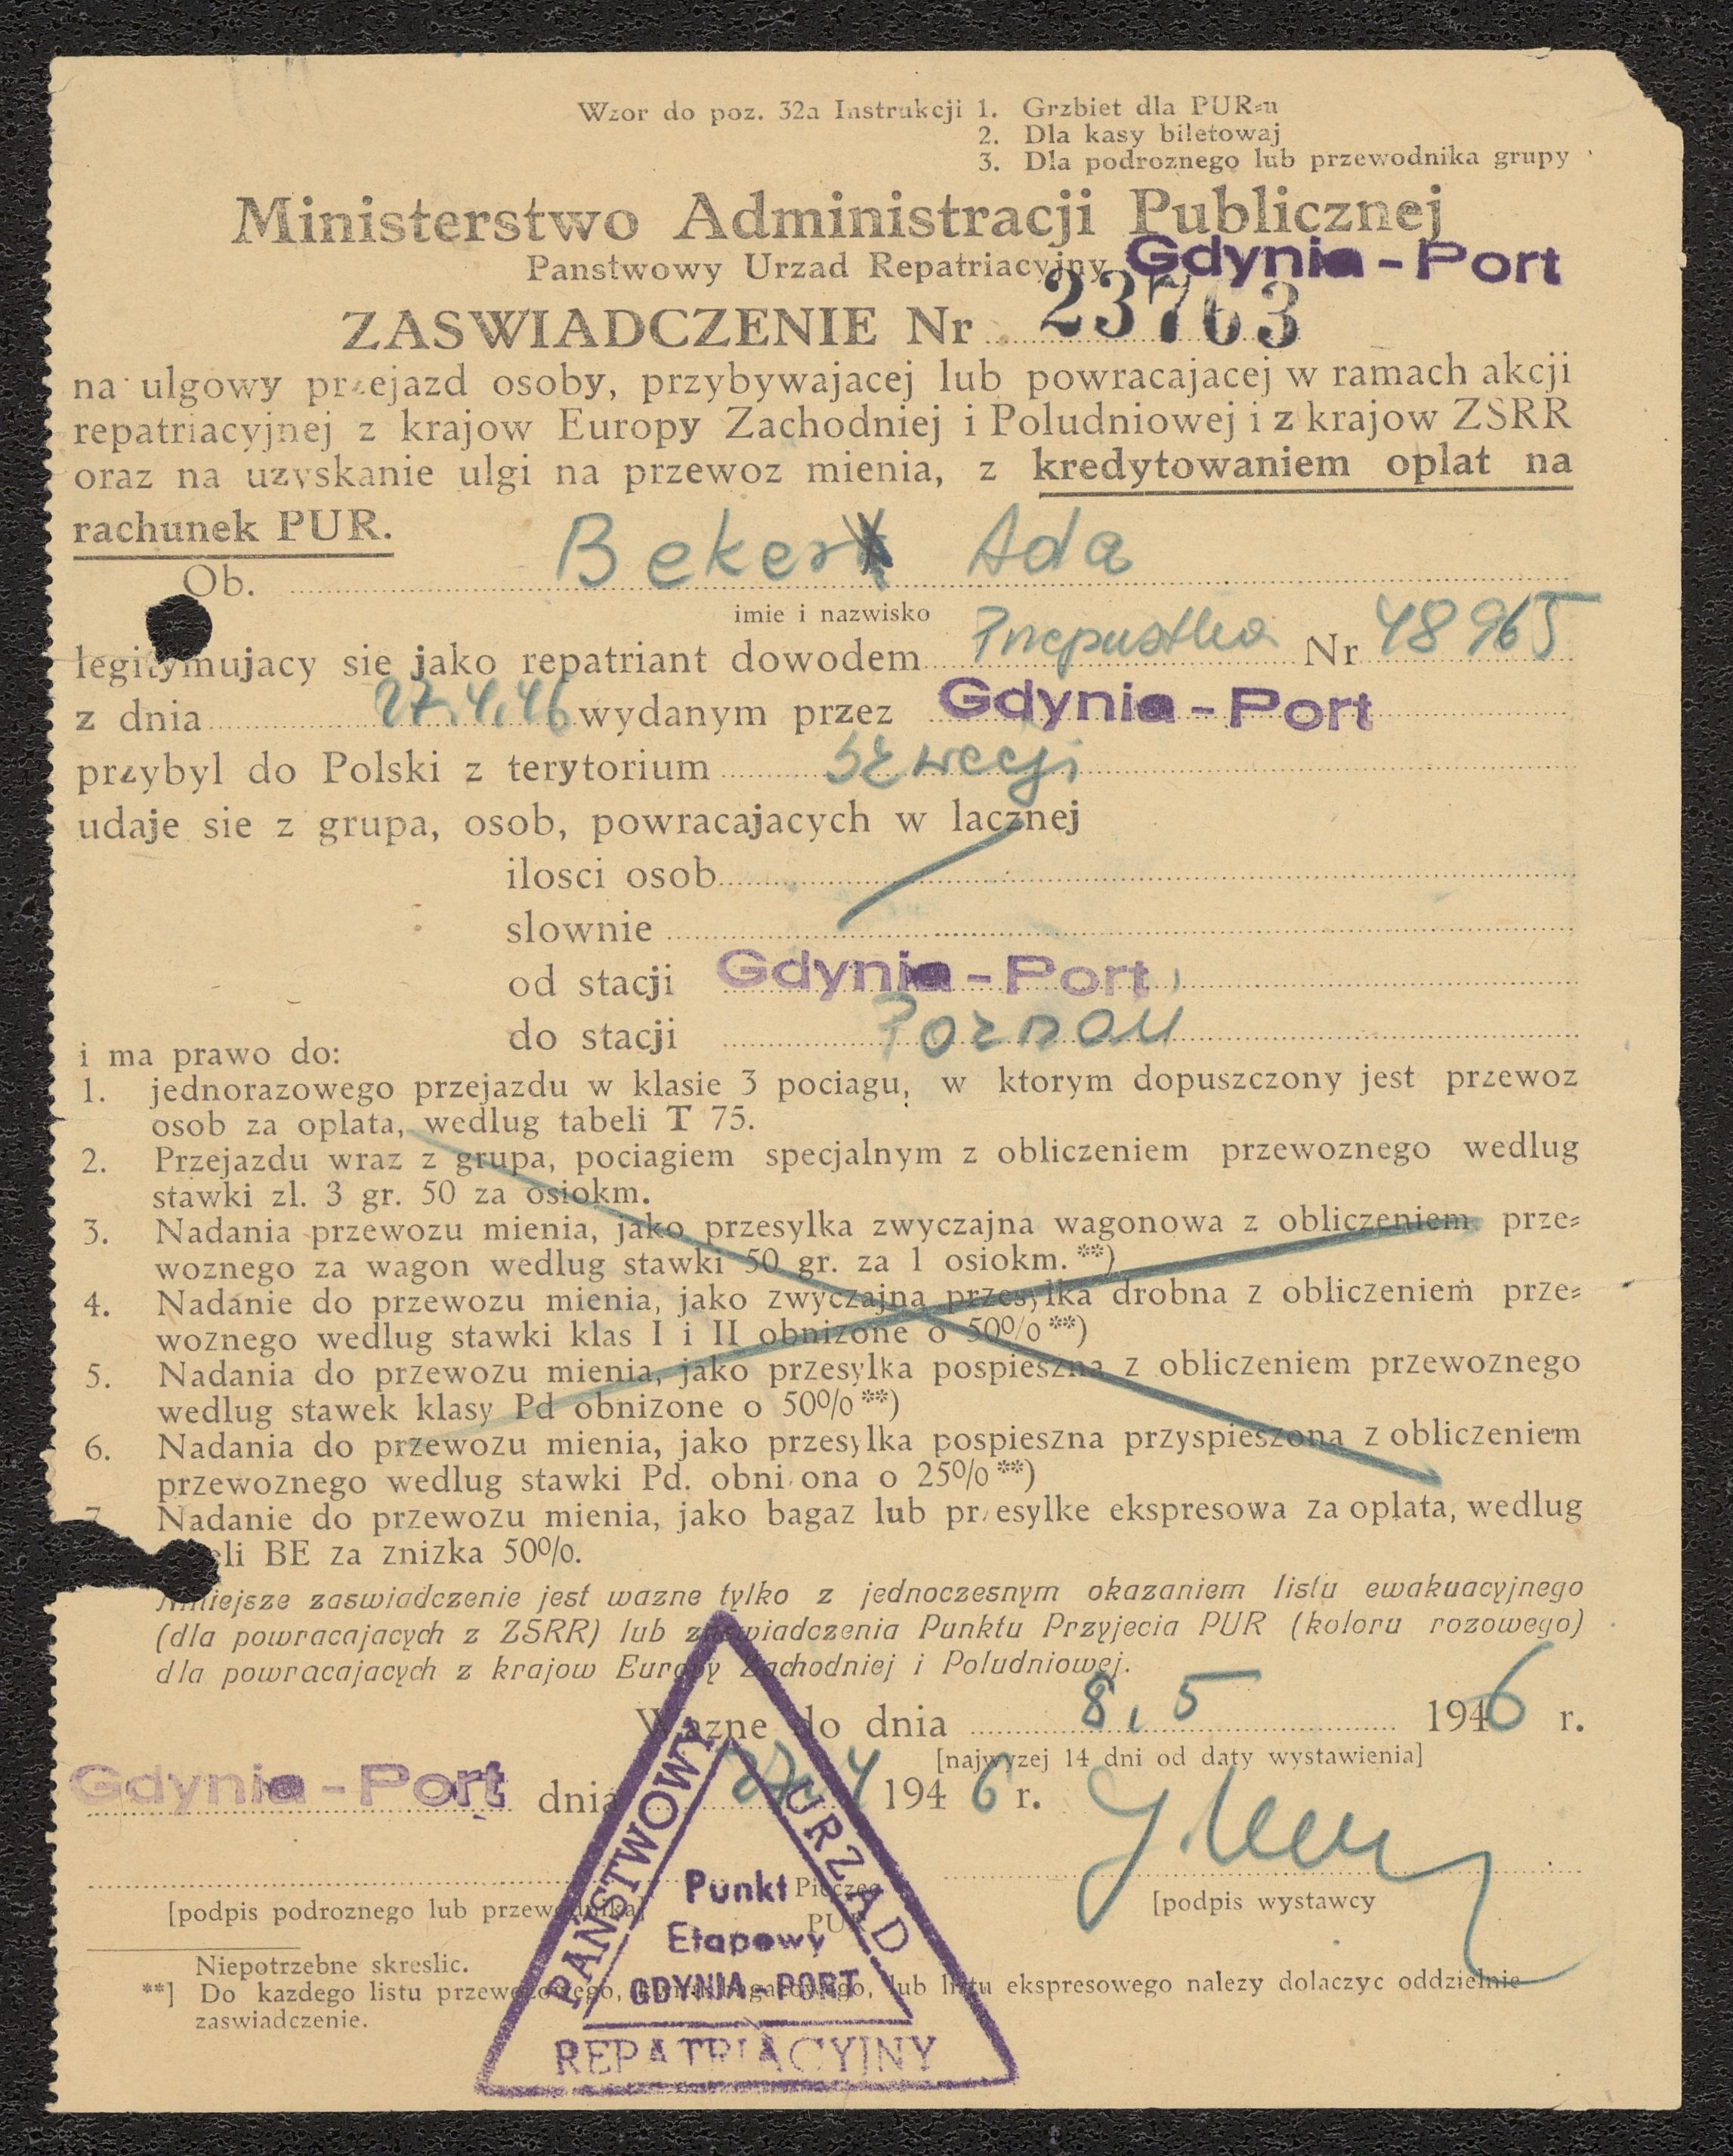 Wzor do poz. 32a Instrukcji 1. Grzbiet dla PUR-u
2. Dla kasy biletowaj
3. Dla podroznego lub przewodnika grupy
Ministerstwo Administracji Publicznej
Panstwowy Urzad Repatriacyjny Gdynia - Port
ZASWIADCZENIE Nr 23763
na ulgowy przejazd osoby, przybywajacej lub powracajacej w ramach akcji
repatriacyjnej z krajow Europy Zachodniej i Poludniowej i z krajow ZSRR
oraz na uzyskanie ulgi na przewoz mienia, z kredytowaniem oplat na
rachunek PUR.
Ob. Beker Ada
imie i nazwisko
legitymujacy sie jako repatriant dowodem Przepustka Nr 48965
z dnia 27.4.46 wydanym przez Gdynia - Port
przybyl do Polski z terytorium Szwecji
udaje sie z grupa, osob, powracajacych w lacznej
ilosci osob
slownie
od stacji Gdynia - Port
do stacji Poznan
i ma prawo do:
1. jednorazowego przejazdu w klasie 3 pociagu, w ktorym dopuszczony jest przewoz
osob za oplata, wedlug tabeli T 75.
2. Przejazdu wraz z grupa, pociagiem specjalnym z obliczeniem przewoznego wedlug
stawki zl. 3 gr. 50 za osiokm.
3. Nadania przewozu mienia, jako przesylka zwyczajna wagonowa z obliczeniem prze-
woznego za wagon wedlug stawki 50 gr. za 1 osiokm. **)
4. Nadanie do przewozu mienia, jako zwyczajna przesylka drobna z obliczeniem prze-
woznego wedlug stawki klas I i II obnizone o 50% **)
5. Nadania do przewozu mienia, jako przesylka pospieszna z obliczeniem przewoznego
wedlug stawek klasy Pd obnizone o 50% **)
6. Nadania do przewozu mienia, jako przesylka pospieszna przyspieszona z obliczeniem
przewoznego wedlug stawki Pd. obni ona o 25% **)
7. Nadanie do przewozu mienia, jako bagaz lub przesylke ekspresowa za oplata, wedlug
eli BE za znizka 50%.
Niniejsze zaswiadczenie jest wazne tylko z jednoczesnym okazaniem listu ewakuacyjnego
(dla powracajacych z ZSRR) lub zaswiadczenia Punktu Przyjecia PUR (koloru rozowego)
dla powracajacych z krajow Europy Zachodniej i Poludniowej.
Wazne do dnia 8, 5 1946 r.
[najwyzej 14 dni od daty wystawienia]
Gdynia - Port dnia 27.4 1946 r.
Pieczec
PUR
[podpis podroznego lub przewodnika]
[podpis wystawcy
Niepotrzebne skreslic.
**] Do kazdego listu przewozowego, lub listu ekspresowego nalezy dolaczyc oddzielnie
zaswiadczenie.
PAŃSTWOWY URZĄD
Punkt
Etapowy
GDYNIA - PORT
REPATRIACYJNY